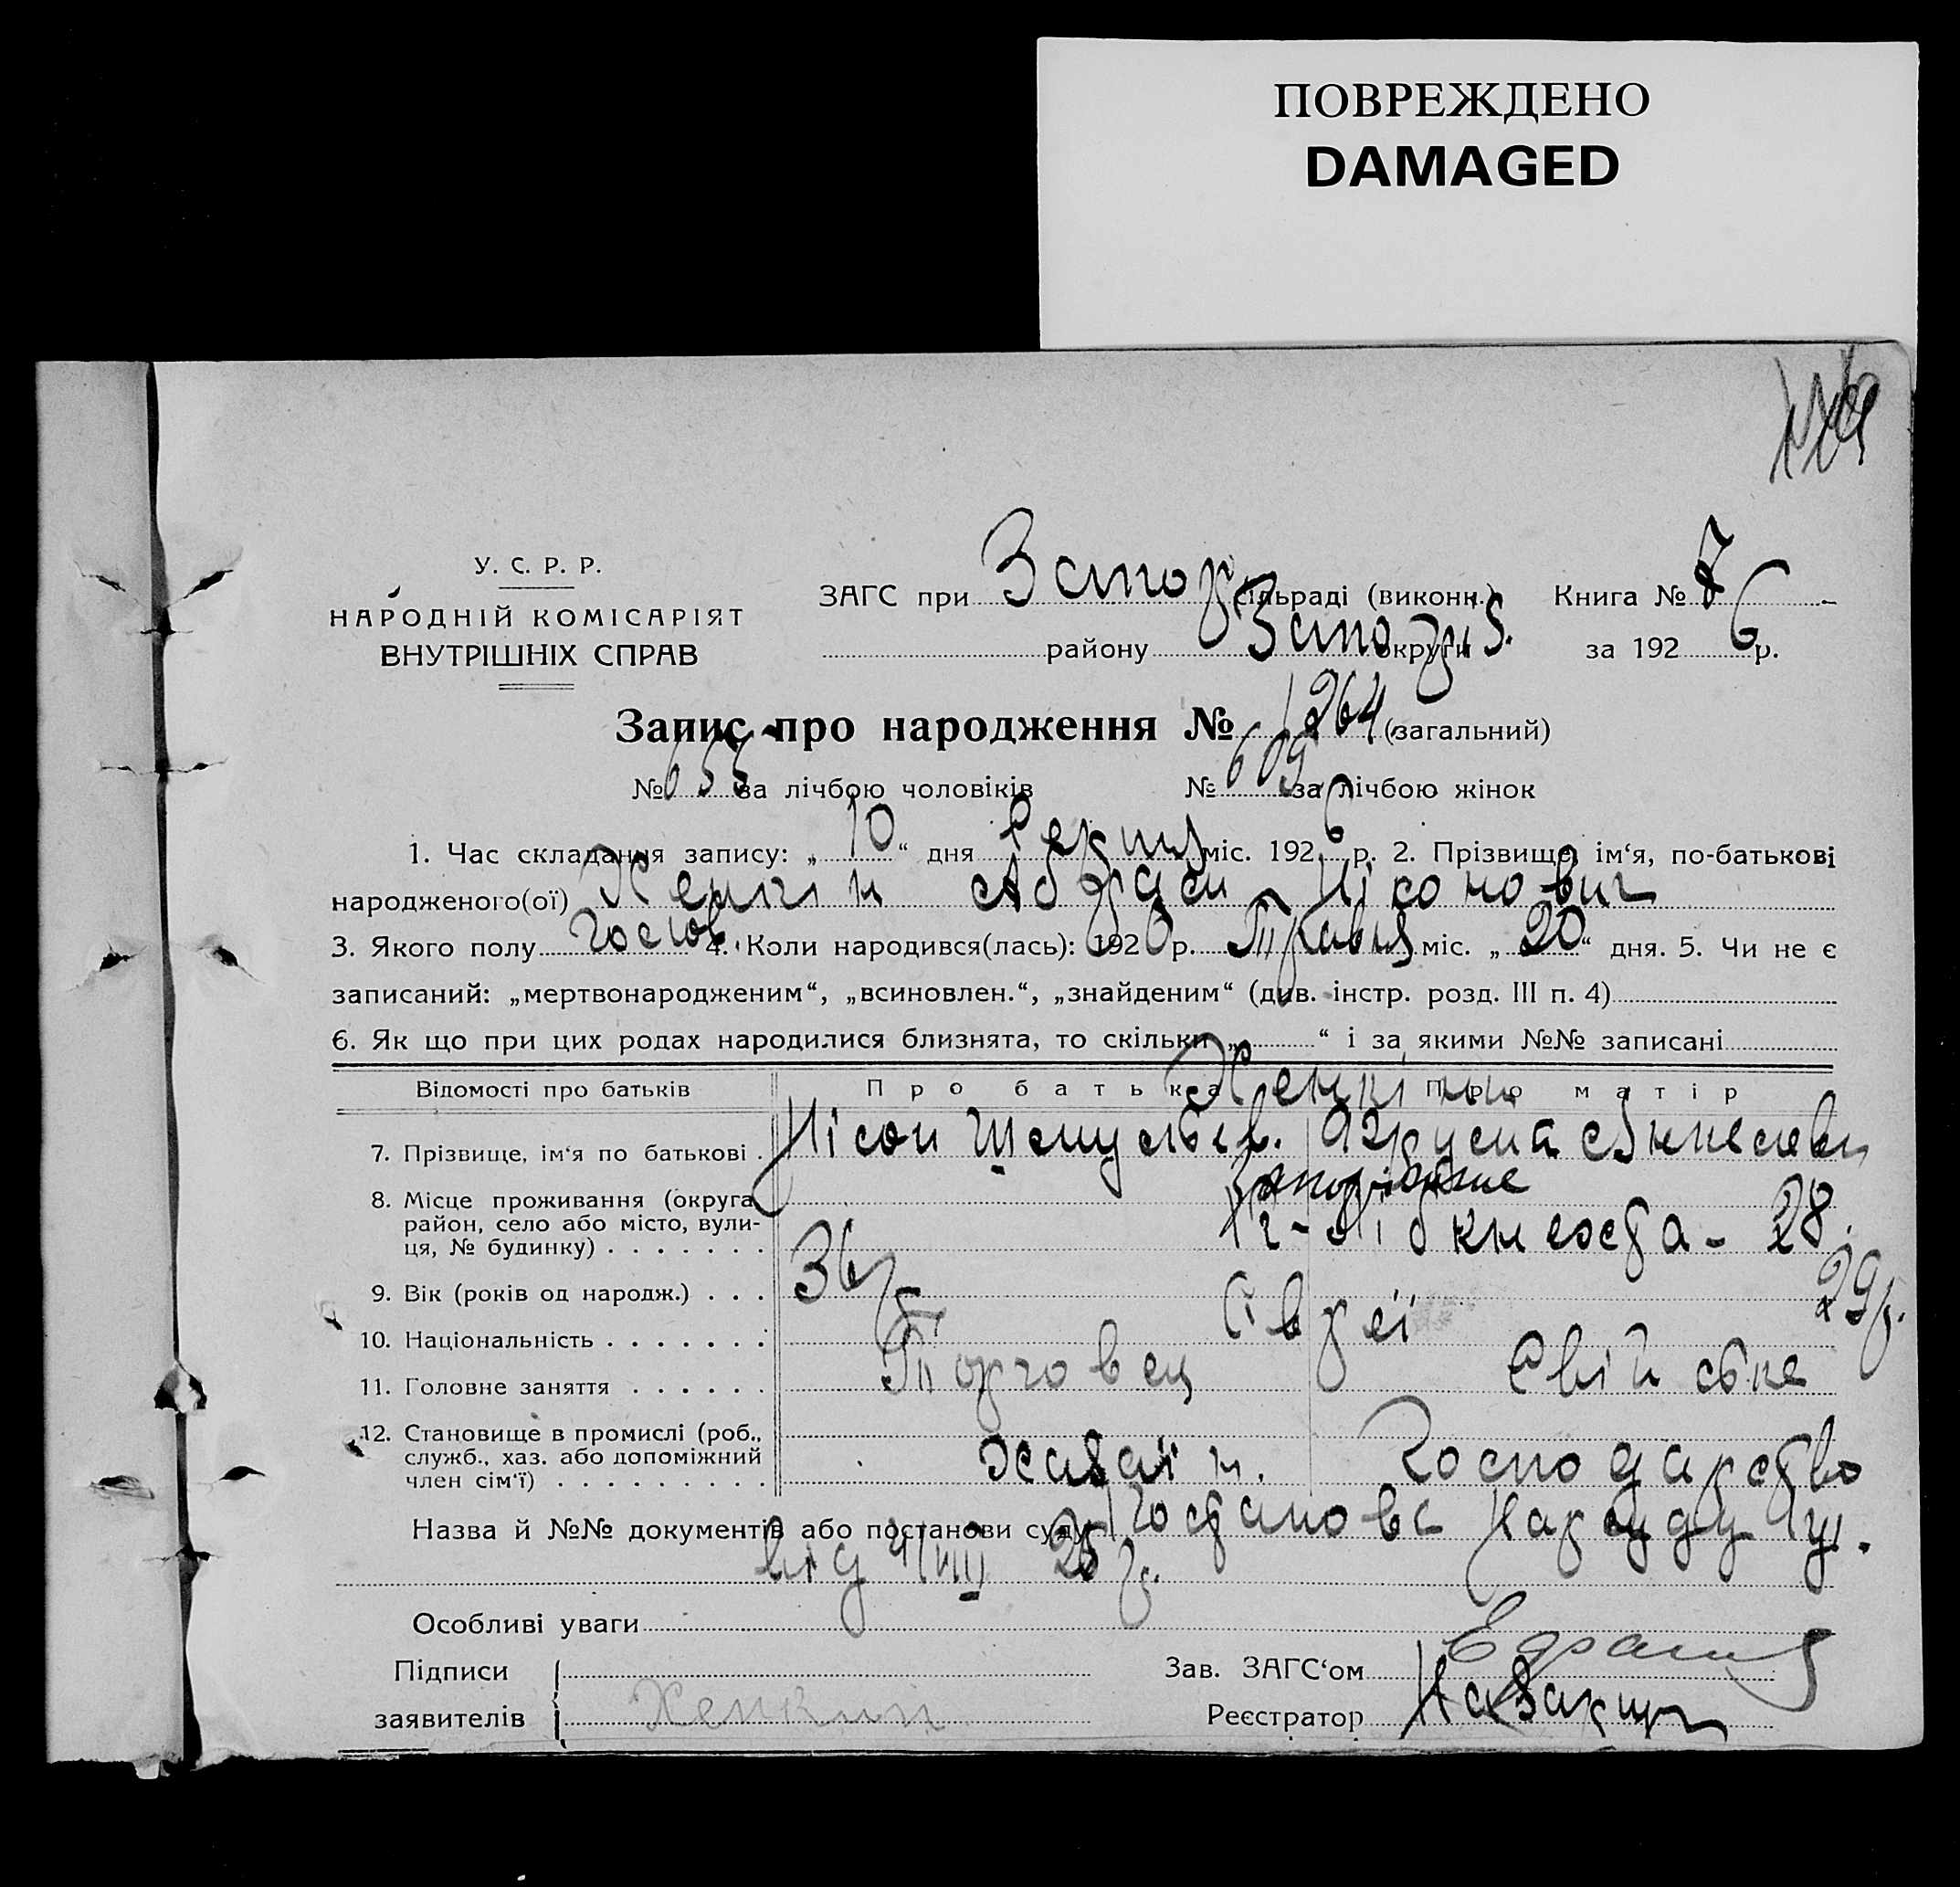 ПОВРЕЖДЕНО
DAMAGED
У. С. Р. Р.
НАРОДНІЙ КОМІСАРІЯТ
ВНУТРІШНІХ СПРАВ
ЗАГС при Запор сільраді (виконк.) Книга № 7
району Запоріз. округи за 1926 р.
Запис про народження № 1264 (загальний)
№ 655 за лічбою чоловіків № 609 за лічбою жінок
1. Час складання запису: „ 10 “ дня Серпня міс. 1926 р. 2. Прізвище, ім‘я, по-батькові
народженого(ої) Хенкін Абрам Нісонович
3. Якого полу 4. Коли народився(лась): 1926 р. Травня міс. „ 20 “ дня. 5. Чи не є
записаний: „мертвонародженим“, „всиновлен.“, „знайденим“ (див. інстр. розд. III п. 4)
6. Як що при цих родах народилися близнята, то скільки „ “ і за якими №№ записані
Відомості про батьків Про батька Про матір
Хенкіни
7. Прізвище, ім‘я по батькові . Нісон Шмульев.
8. Місце проживання (округа, район, село або місто, вулиця, № будинку) . . . . . . . Запоріжже
К-Лібкнехта - 28.
9. Вік (років од народж.) . . . 36 р. 29 р.
10. Національність . . . . . . . Євреї
11. Головне заняття . . . . . . Торговец Свійське
12. Становище в промислі (роб., служб., хаз. або допоміжний член сім‘ї) . . . . . . . . . хазаїн. Господарство
Назва й №№ документів або постанови суду Постанова Нарсуду
від 4/VIII 26 р.
Особливі уваги
Підписи заявителів Хенкин
Зав. ЗАГС‘ом
Реєстратор